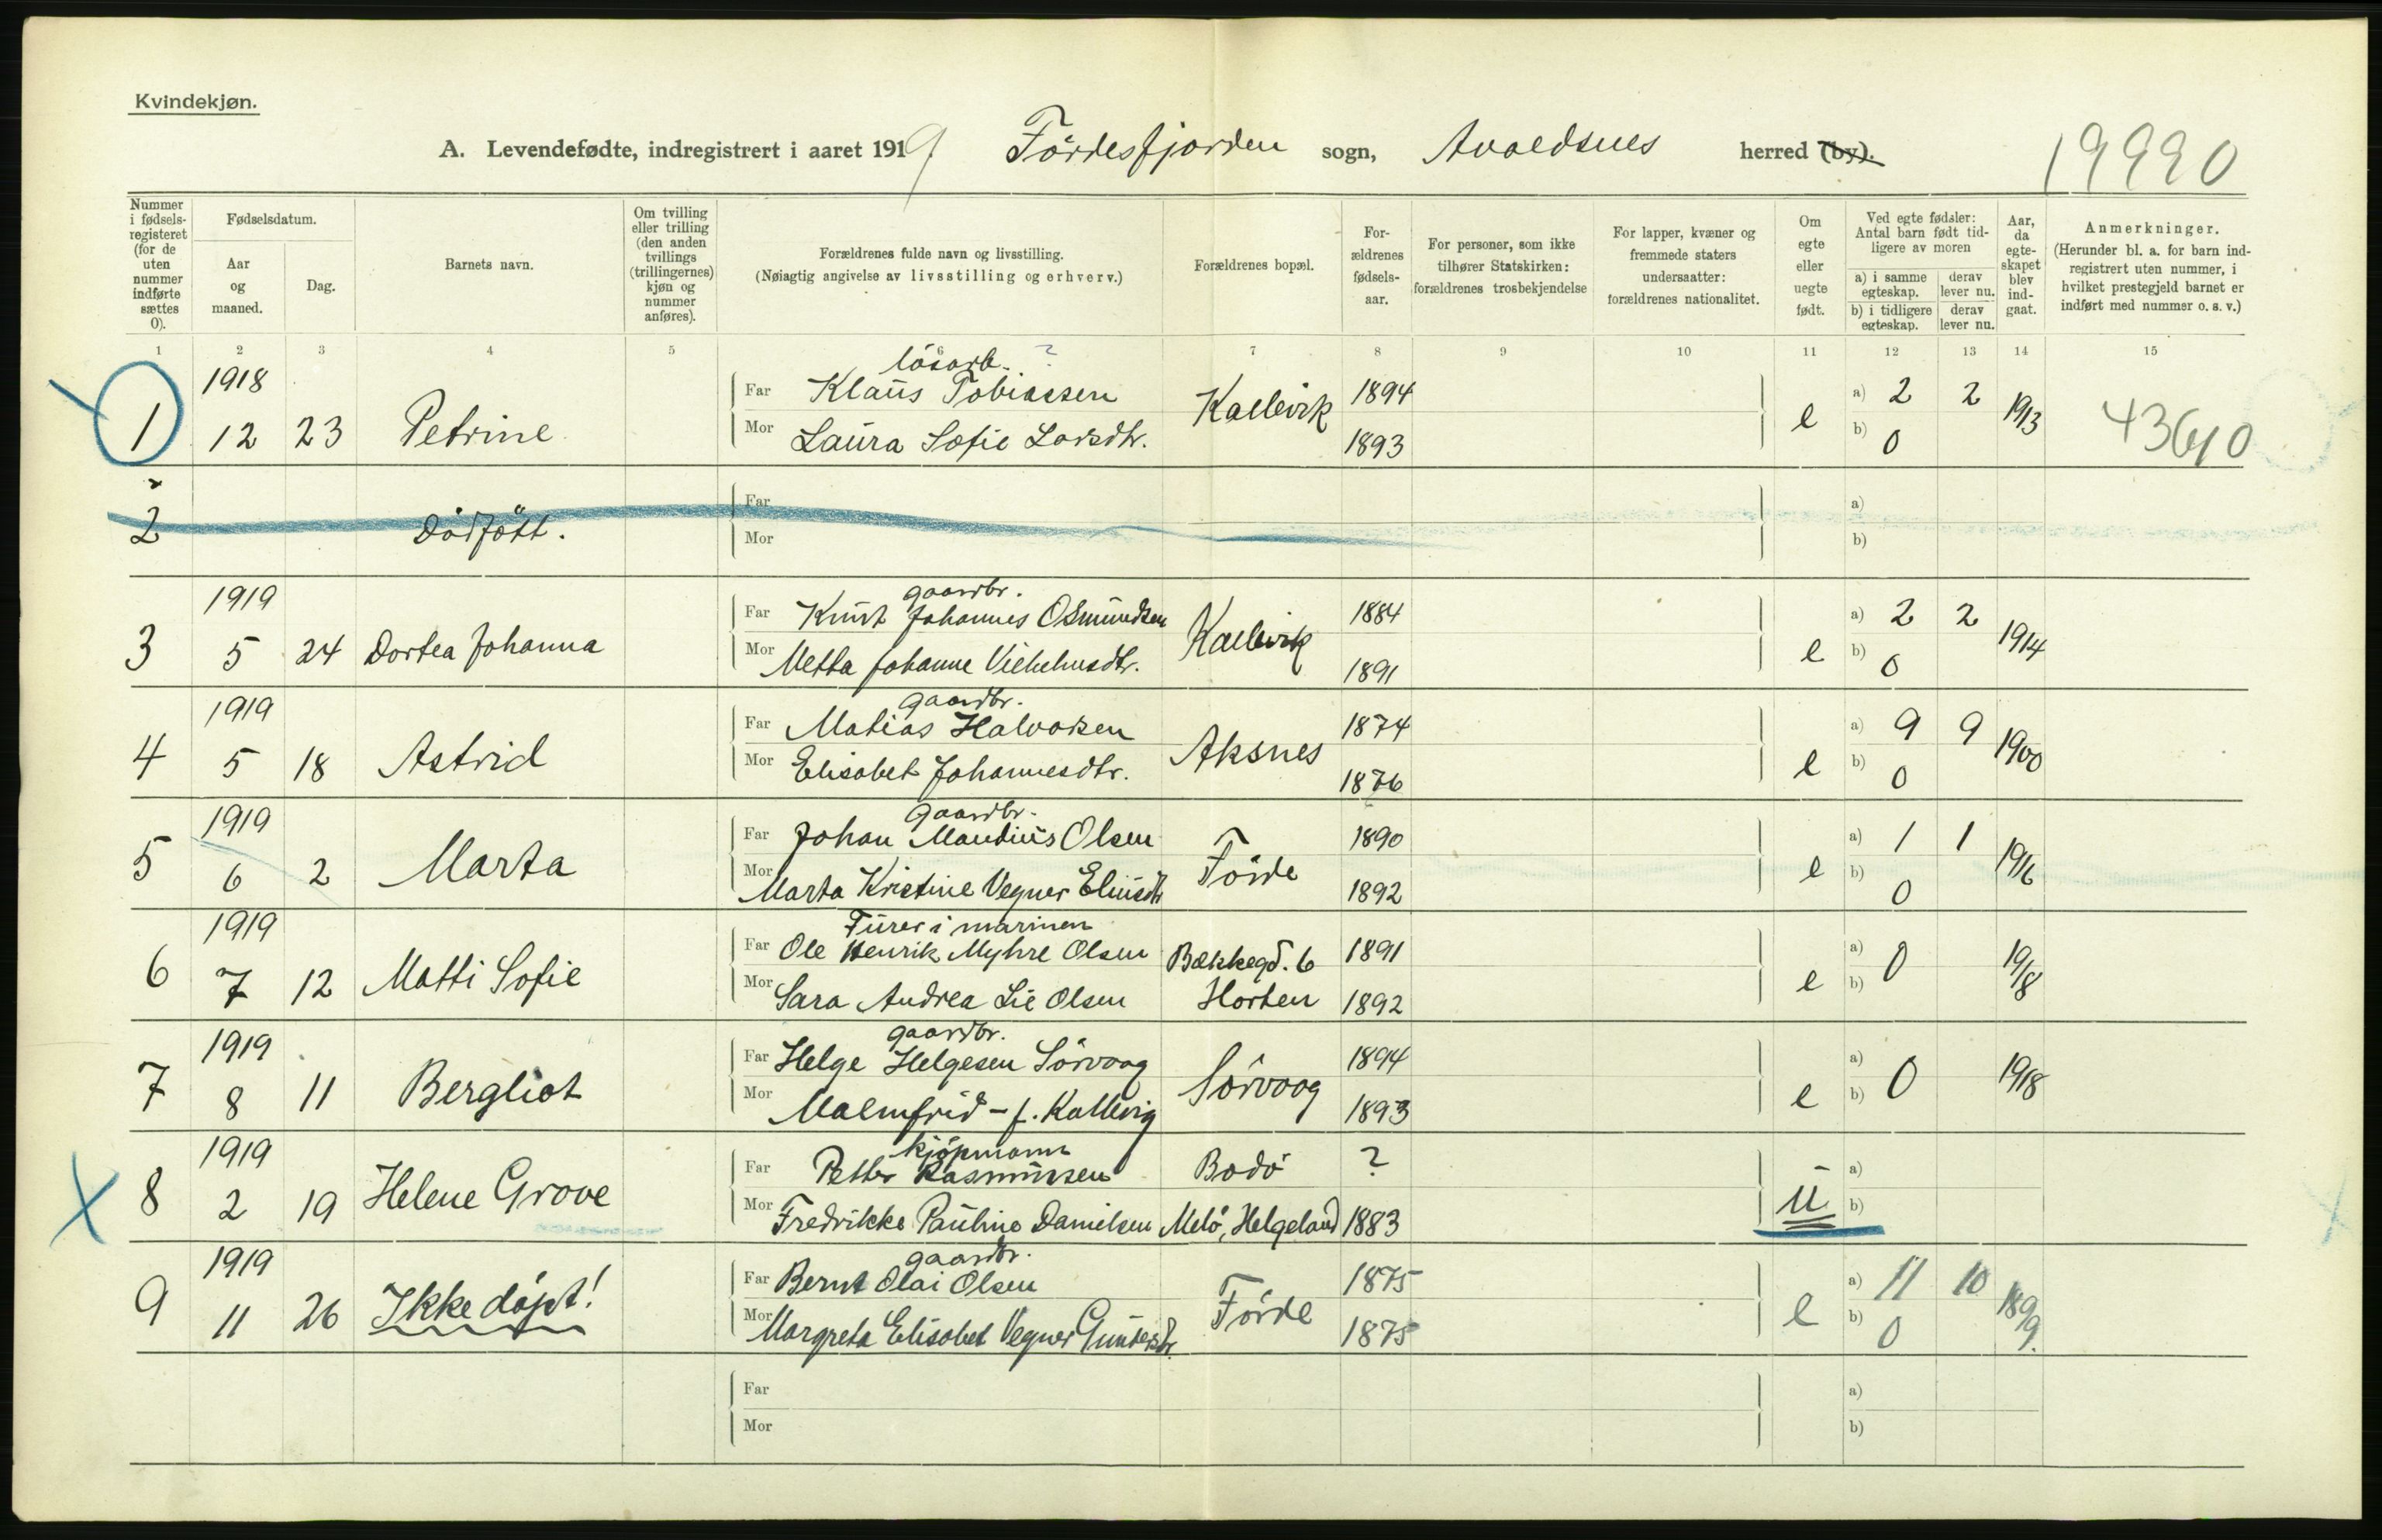 Kvindekjøn.
A. Levendefødte, indregistrert i aaret 1919. Fördesfjorden sogn, Avaldsnes herred (by). 19990
Nummer i fødsels-registeret (for de uten nummer indførte sættes 0).
Fødselsdatum.
Aar og maaned.
Dag.
Barnets navn.
Om tvilling eller trilling (den anden tvillings (trillingernes) kjøn og nummer anføres).
Forældrenes fulde navn og livsstilling.
(Nøiagtig angivelse av livsstilling og erhverv.)
Forældrenes bopæl.
For-ældrenes fødsels-aar.
For personer, som ikke tilhører Statskirken: forældrenes trosbekjendelse
For lapper, kvæner og fremmede staters undersaatter: forældrenes nationalitet.
Om egte eller uegte født.
Ved egte fødsler: Antal barn født tid-ligere av moren
a) i samme egteskap. derav lever nu.
b) i tidligere egteskap. derav lever nu.
Aar, da egte-skapet blev ind-gaat.
Anmerkninger.
(Herunder bl. a. for barn ind-registrert uten nummer, i hvilket prestegjeld barnet er indført med nummer o. s. v.)
1 2 3 4 5 6 7 8 9 10 11 12 13 14 15
1918 løsarb. ?
Far Klaus Tobiassen Kallevik 1894 a) 2 2 1913
1 12 23 Petrine Mor Laura Sofie Larsdtr. 1893 e b) 0 43610
Far a)
2 Dödfött. Mor b)
1919 gaardbr.
Far Knut Johannes Osmundsen Kallevik 1884 a) 2 2 1914
3 5 24 Dortea Johanna Mor Metta Johanne Vilhelmsdtr. 1891 e b) 0
1919 gaardbr.
Far Matias Halvorsen Aksnes 1874 a) 9 9 1900
4 5 18 Astrid Mor Elisabet Johannesdtr. 1876 e b) 0
1919 gaardbr.
Far Johan Mandius Olsen Förde 1890 a) 1 1 1916
5 6 2 Marta Mor Marta Kristine Vegner Eliusdtr 1892 e b) 0
1919 Fürer i marinen
Far Ole Henrik Myhre Olsen Bækkegd. 6 1891 a) 0 1918
6 7 12 Matti Sofie Mor Sara Andrea Lie Olsen Horten 1892 e b)
1919 gaardbr.
Far Helge Helgesen Sörvaag Sörvaag 1894 a) 0 1918
7 8 11 Bergliot Mor Malmfrid – f. Kallevig 1893 e b)
1919 kjøpmann
Far Petter Rasmussen Bodö ? a)
8 2 19 Helene Grove Mor Fredrikke Pauline Danielsen Melö, Helgeland 1883 u b)
1919 gaardbr.
Far Bernt Olai Olsen Förde 1875 a) 11 10 1899.
9 11 26 Ikke döpt! Mor Margreta Elisabet Vegner 1875 e b) 0
Far a)
Mor b)